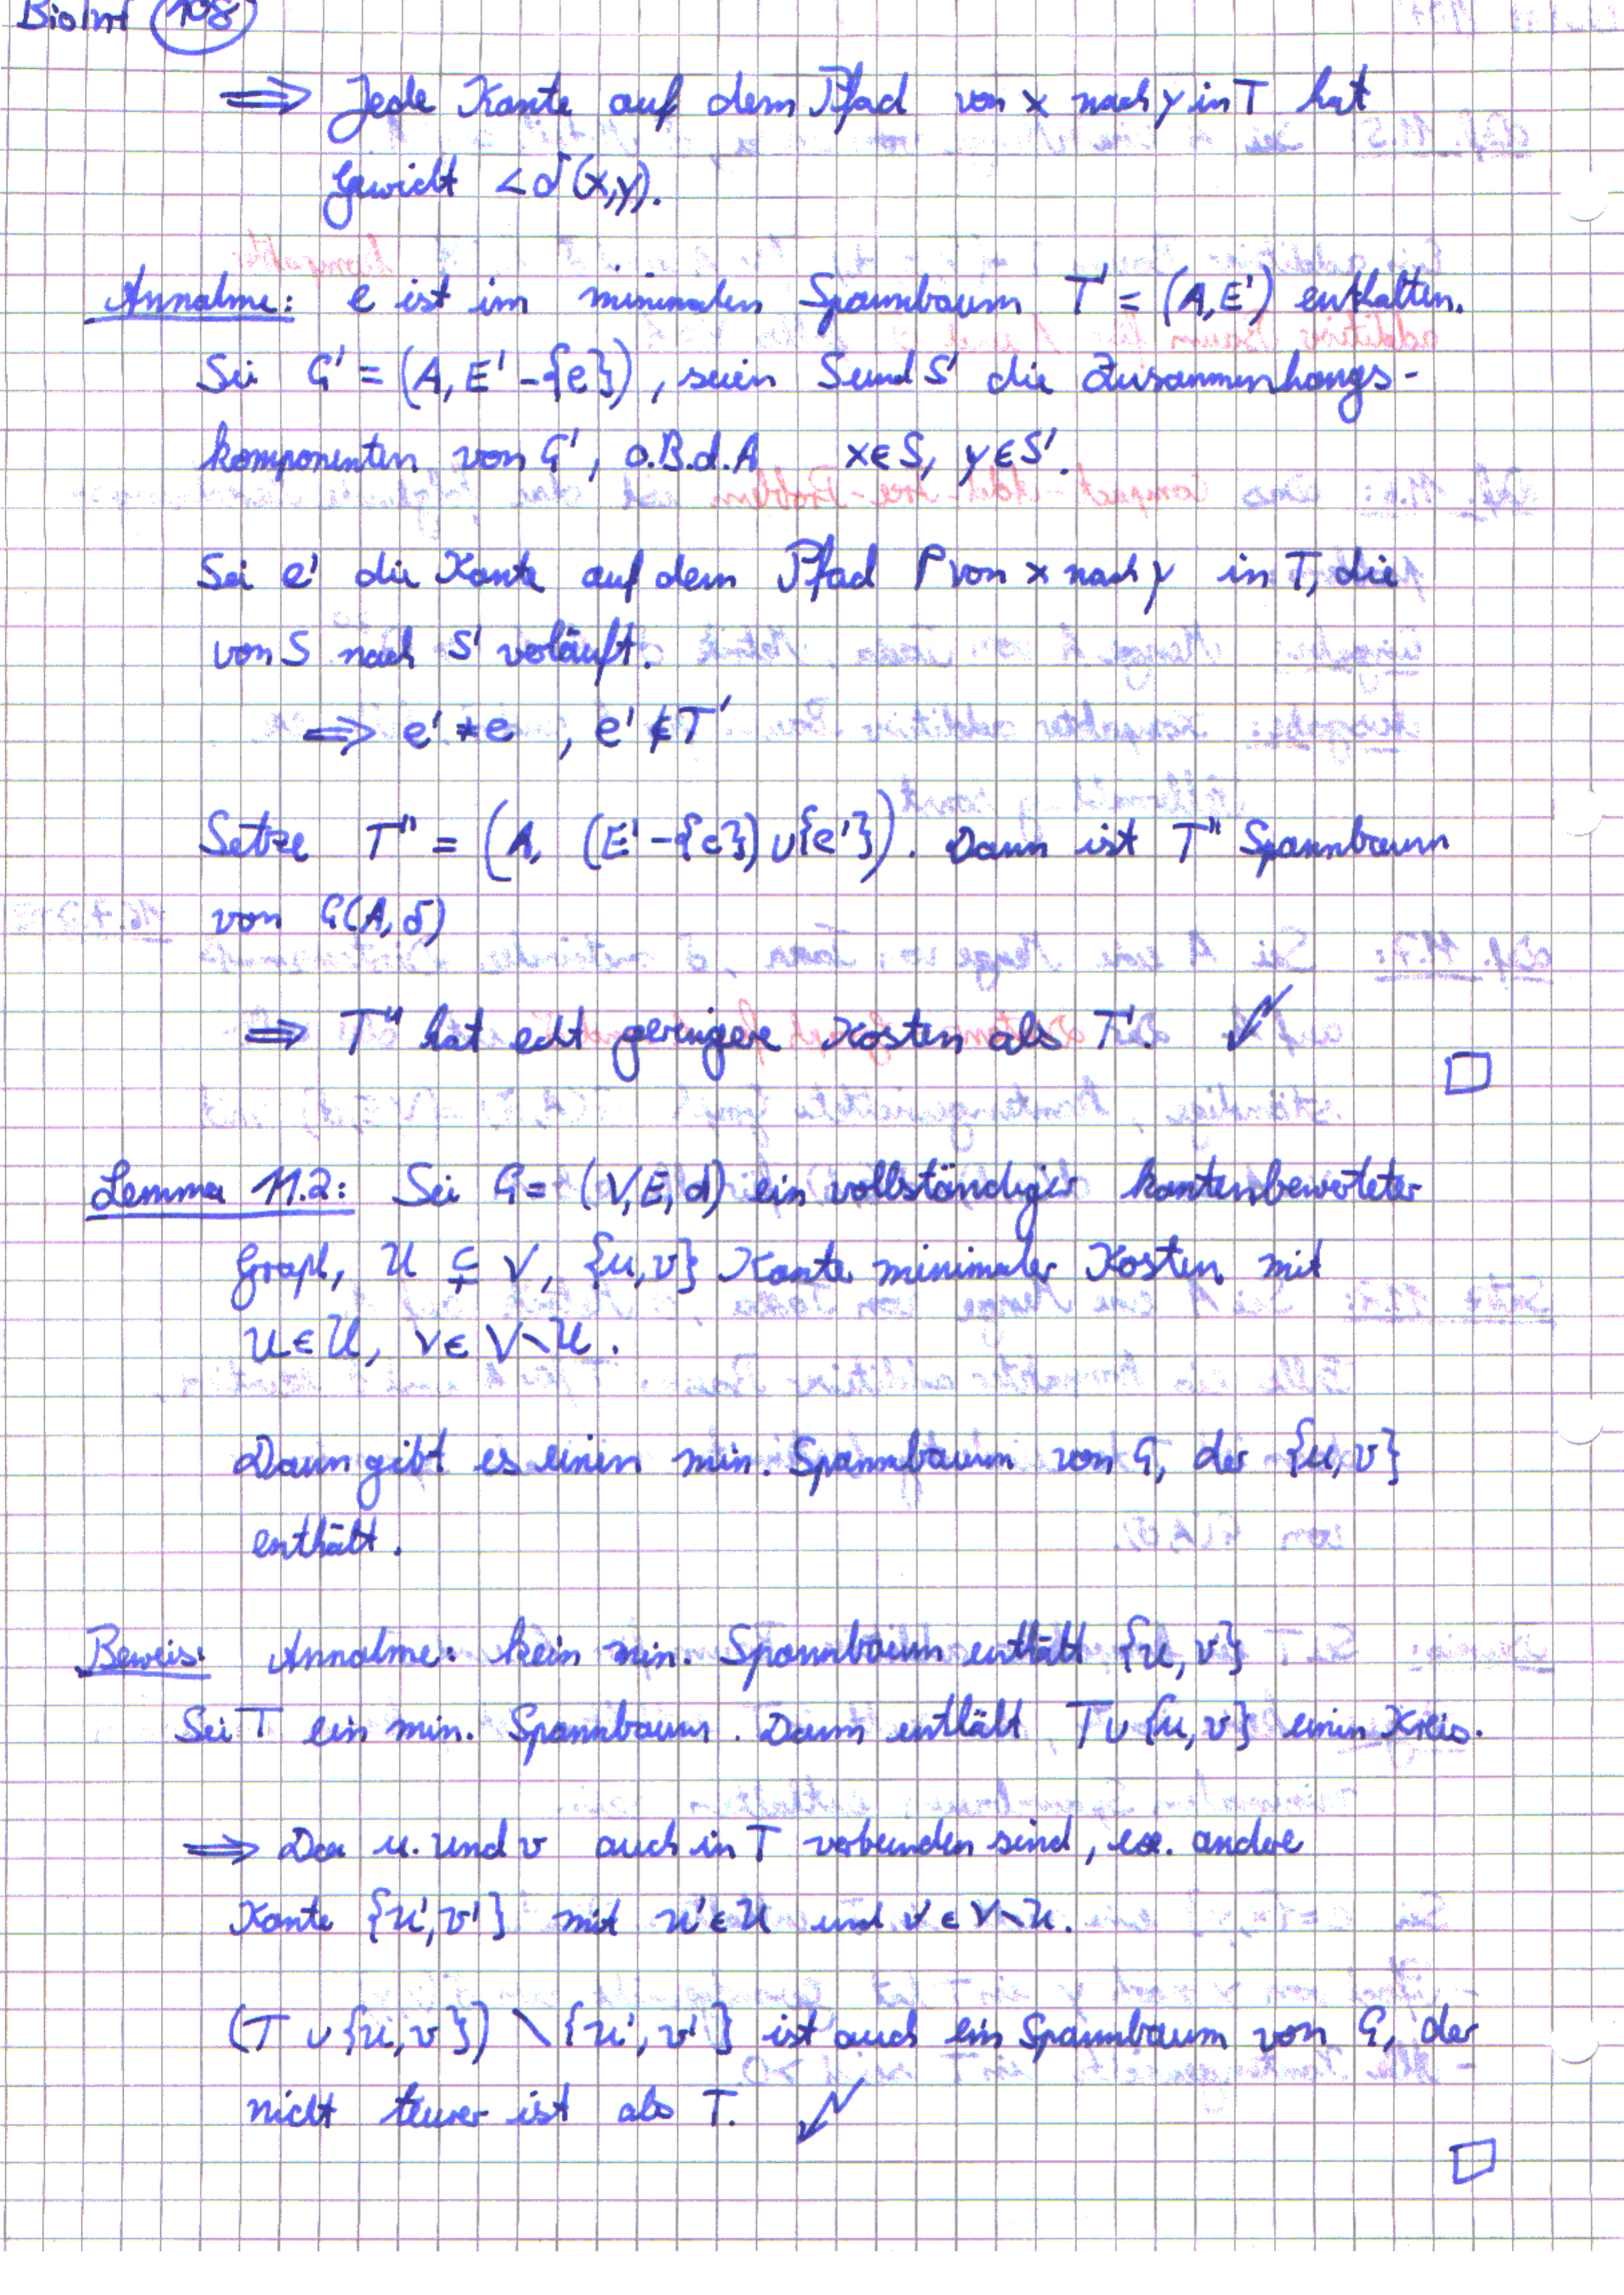 BioInf 108
⟹ Jede Kante auf dem Pfad von x nach y in T hat
Gewicht < δ(x,y).
Annahme: e ist im minimalen Spannbaum T' = (A,E') enthalten.
Sei G' = (A, E' - {e}), seien S und S' die Zusammenhangs-
komponenten von G', o.B.d.A x∈S, y∈S'.
Sei e' die Kante auf dem Pfad P von x nach y in T, die
von S nach S' verläuft.
⟹ e' ≠ e , e' ∉ T'
Setze T'' = (A, (E' - {e}) ∪ {e'}). Dann ist T'' Spannbaum
von G(A,δ)
⟹ T'' hat echt geringere Kosten als T'. ↯
□
Lemma 11.2: Sei G = (V,E,d) ein vollständiger kantenbewerteter
Graph, U ⊊ V, {u,v} Kante minimaler Kosten mit
u∈U, v∈V∖U.
Dann gibt es einen min. Spannbaum von G, der {u,v}
enthält.
Beweis: Annahme: kein min. Spannbaum enthält {u,v}
Sei T ein min. Spannbaum. Dann enthält T∪{u,v} einen Kreis.
⟹ Da u und v auch in T verbunden sind, ex. andere
Kante {u',v'} mit u'∈U und v'∈V∖U.
(T ∪ {u,v}) ∖ {u',v'} ist auch ein Spannbaum von G, der
nicht teurer ist als T. ↯
□